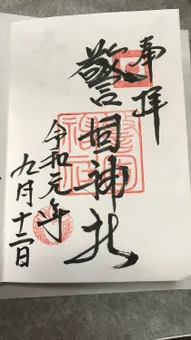 奉拝
警固神社
令和元年
九月十二日